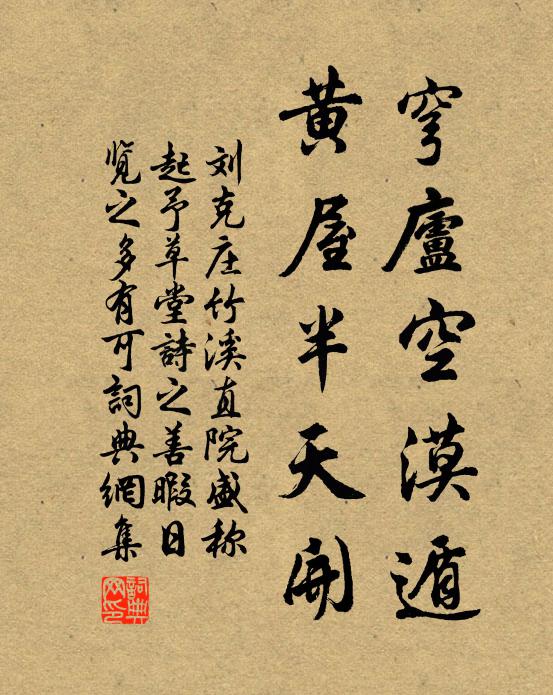 穹廬空漠遁
黄屋半天開
刘克庄竹溪直院盛称
起予草堂詩之善暇日
览之多有可詞典網集
詞典网印